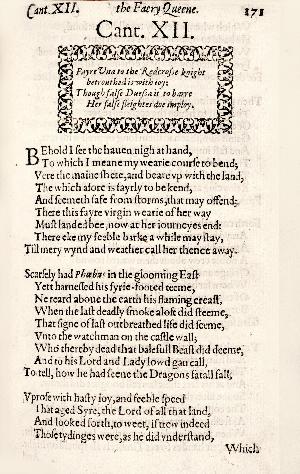 Cant. XII. the Faery Queene. 171
Cant. XII.
Fayre Vna to the Redcrosse knight
betrouthed is with ioy:
Though false Duessa it to barre
Her false sleightes doe imploy.
BEhold I see the hauen nigh at hand,
To which I meane my wearie course to bend;
Vere the maine shete, and beare vp with the land,
The which afore is fayrly to be kend,
And seemeth safe from storms, that may offend;
There this fayre virgin wearie of her way
Must landed bee, now at her iourneyes end:
There eke my feeble barke a while may stay,
Till mery wynd and weather call her thence away.
Scarsely had Phœbus in the glooming East
Yett harnessed his fyrie-footed teeme,
Ne reard aboue the earth his flaming creast,
When the last deadly smoke aloft did steeme,
That signe of last outbreathed life did seeme,
Vnto the watchman on the castle wall;
Who thereby dead that balefull Beast did deeme,
And to his Lord and Lady lowd gan call,
To tell, how he had seene the Dragons fatall fall.
Vprose with hasty ioy, and feeble speed
That aged Syre, the Lord of all that land,
And looked forth, to weet, if trew indeed
Those tydinges were, as he did vnderstand,
Which